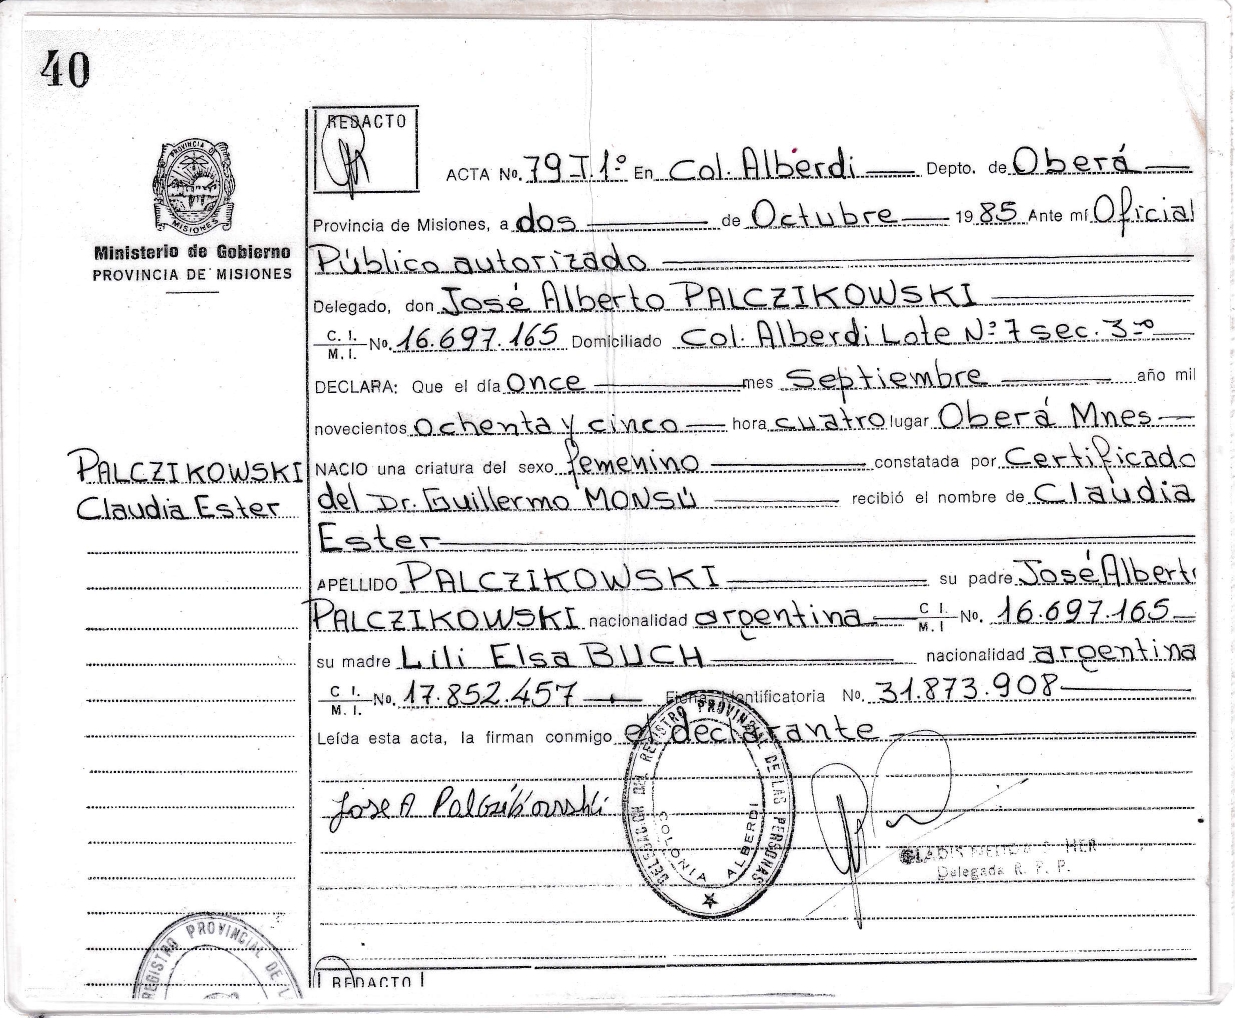 40
REDACTO
ACTA No. 79 T1º En Col. Alberdi Depto. de Oberá
Provincia de Misiones, a dos de Octubre 1985 Ante mí Oficial
Público autorizado
Delegado, don José Alberto PALCZIKOWSKI
C. I. M. I. No. 16.697.165 Domiciliado Col. Alberdi Lote Nº 7 sec. 3º
DECLARA: Que el día Once mes Septiembre año mil
novecientos Ochenta y cinco hora cuatro lugar Oberá Mnes
NACIO una criatura del sexo femenino constatada por Certificado
del Dr. Guillermo MONSÚ recibió el nombre de Claudia
Ester
APELLIDO PALCZIKOWSKI su padre José Alberto
PALCZIKOWSKI nacionalidad argentina C. I. M. I No. 16.697.165
su madre Lili Elsa BUCH nacionalidad argentina
C. I. M. I. No. 17.852.457 Ficha Identificatoria No. 31.873.908
Leída esta acta, la firman conmigo el declarante
Jose A Palczikowski
DELEGACION DEL REGISTRO PROVINCIAL DE LAS PERSONAS
COLONIA ALBERDI
GLADIS HER
Delegada R. P. P.
REDACTO
PROVINCIA DE MISIONES
Ministerio de Gobierno
PROVINCIA DE MISIONES
PALCZIKOWSKI
Claudia Ester
REGISTRO PROVINCIAL DE L